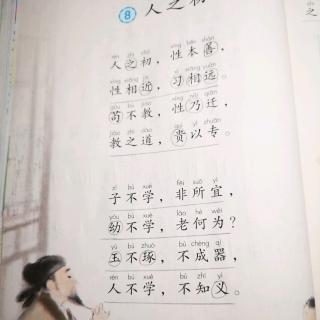 8 人之初
rén zhī chū xìng běn shàn
人之初，性本善，
xìng xiāng jìn xí xiāng yuǎn
性相近，习相远。
gǒu bú jiào xìng nǎi qiān
苟不教，性乃迁，
jiào zhī dào guì yǐ zhuān
教之道，贵以专。
zǐ bù xué fēi suǒ yí
子不学，非所宜，
yòu bù xué lǎo hé wéi
幼不学，老何为？
yù bù zhuó bù chéng qì
玉不琢，不成器，
rén bù xué bù zhī yì
人不学，不知义。
之